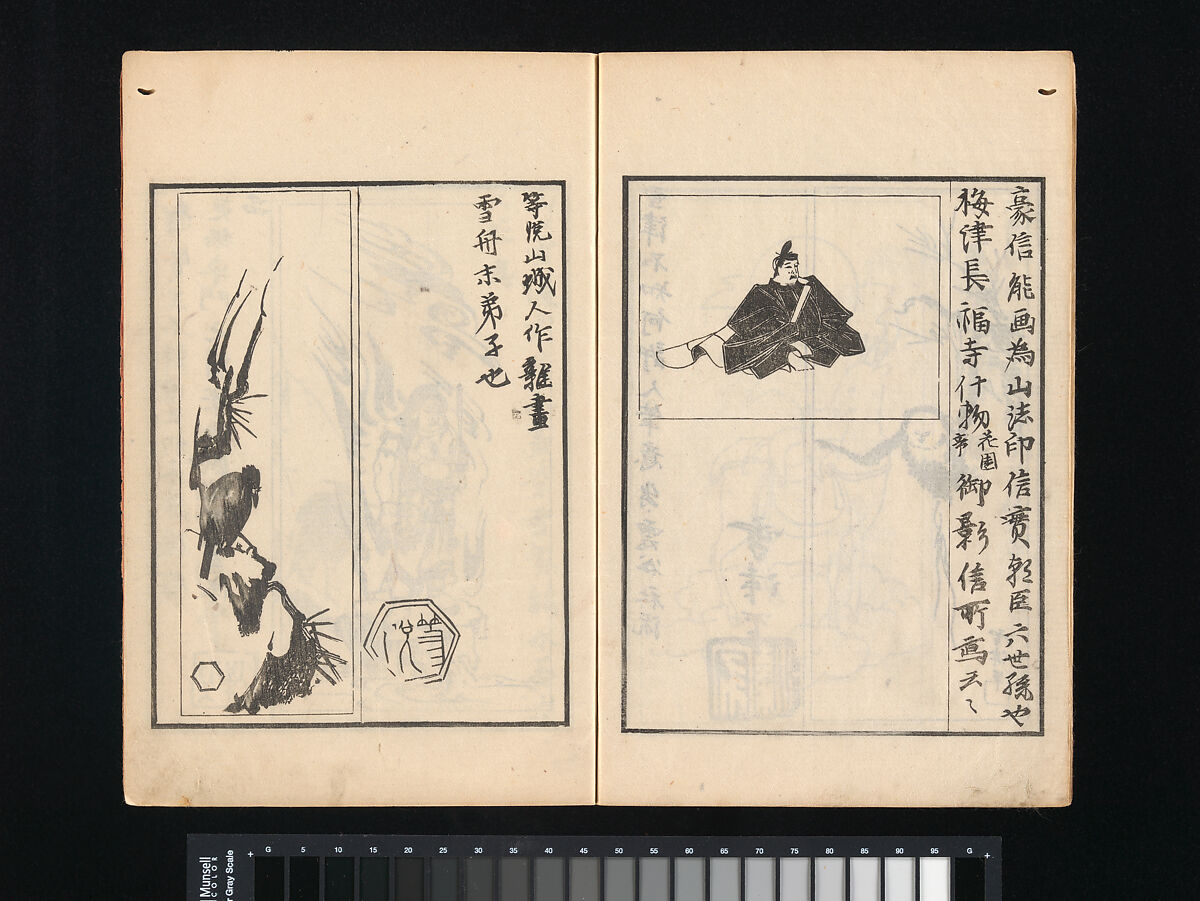 豪信能画為山法印信實朝臣六世孫也
梅津長福寺什物花園帝御影信所寫云〻
等悦山城人作雜畫
雪舟末弟子也
等悦
Munsell
COLOR
r Gray Scale
G 5 10 15 20 25 30 35 40 45 50 55 60 65 70 75 80 85 90 95 G